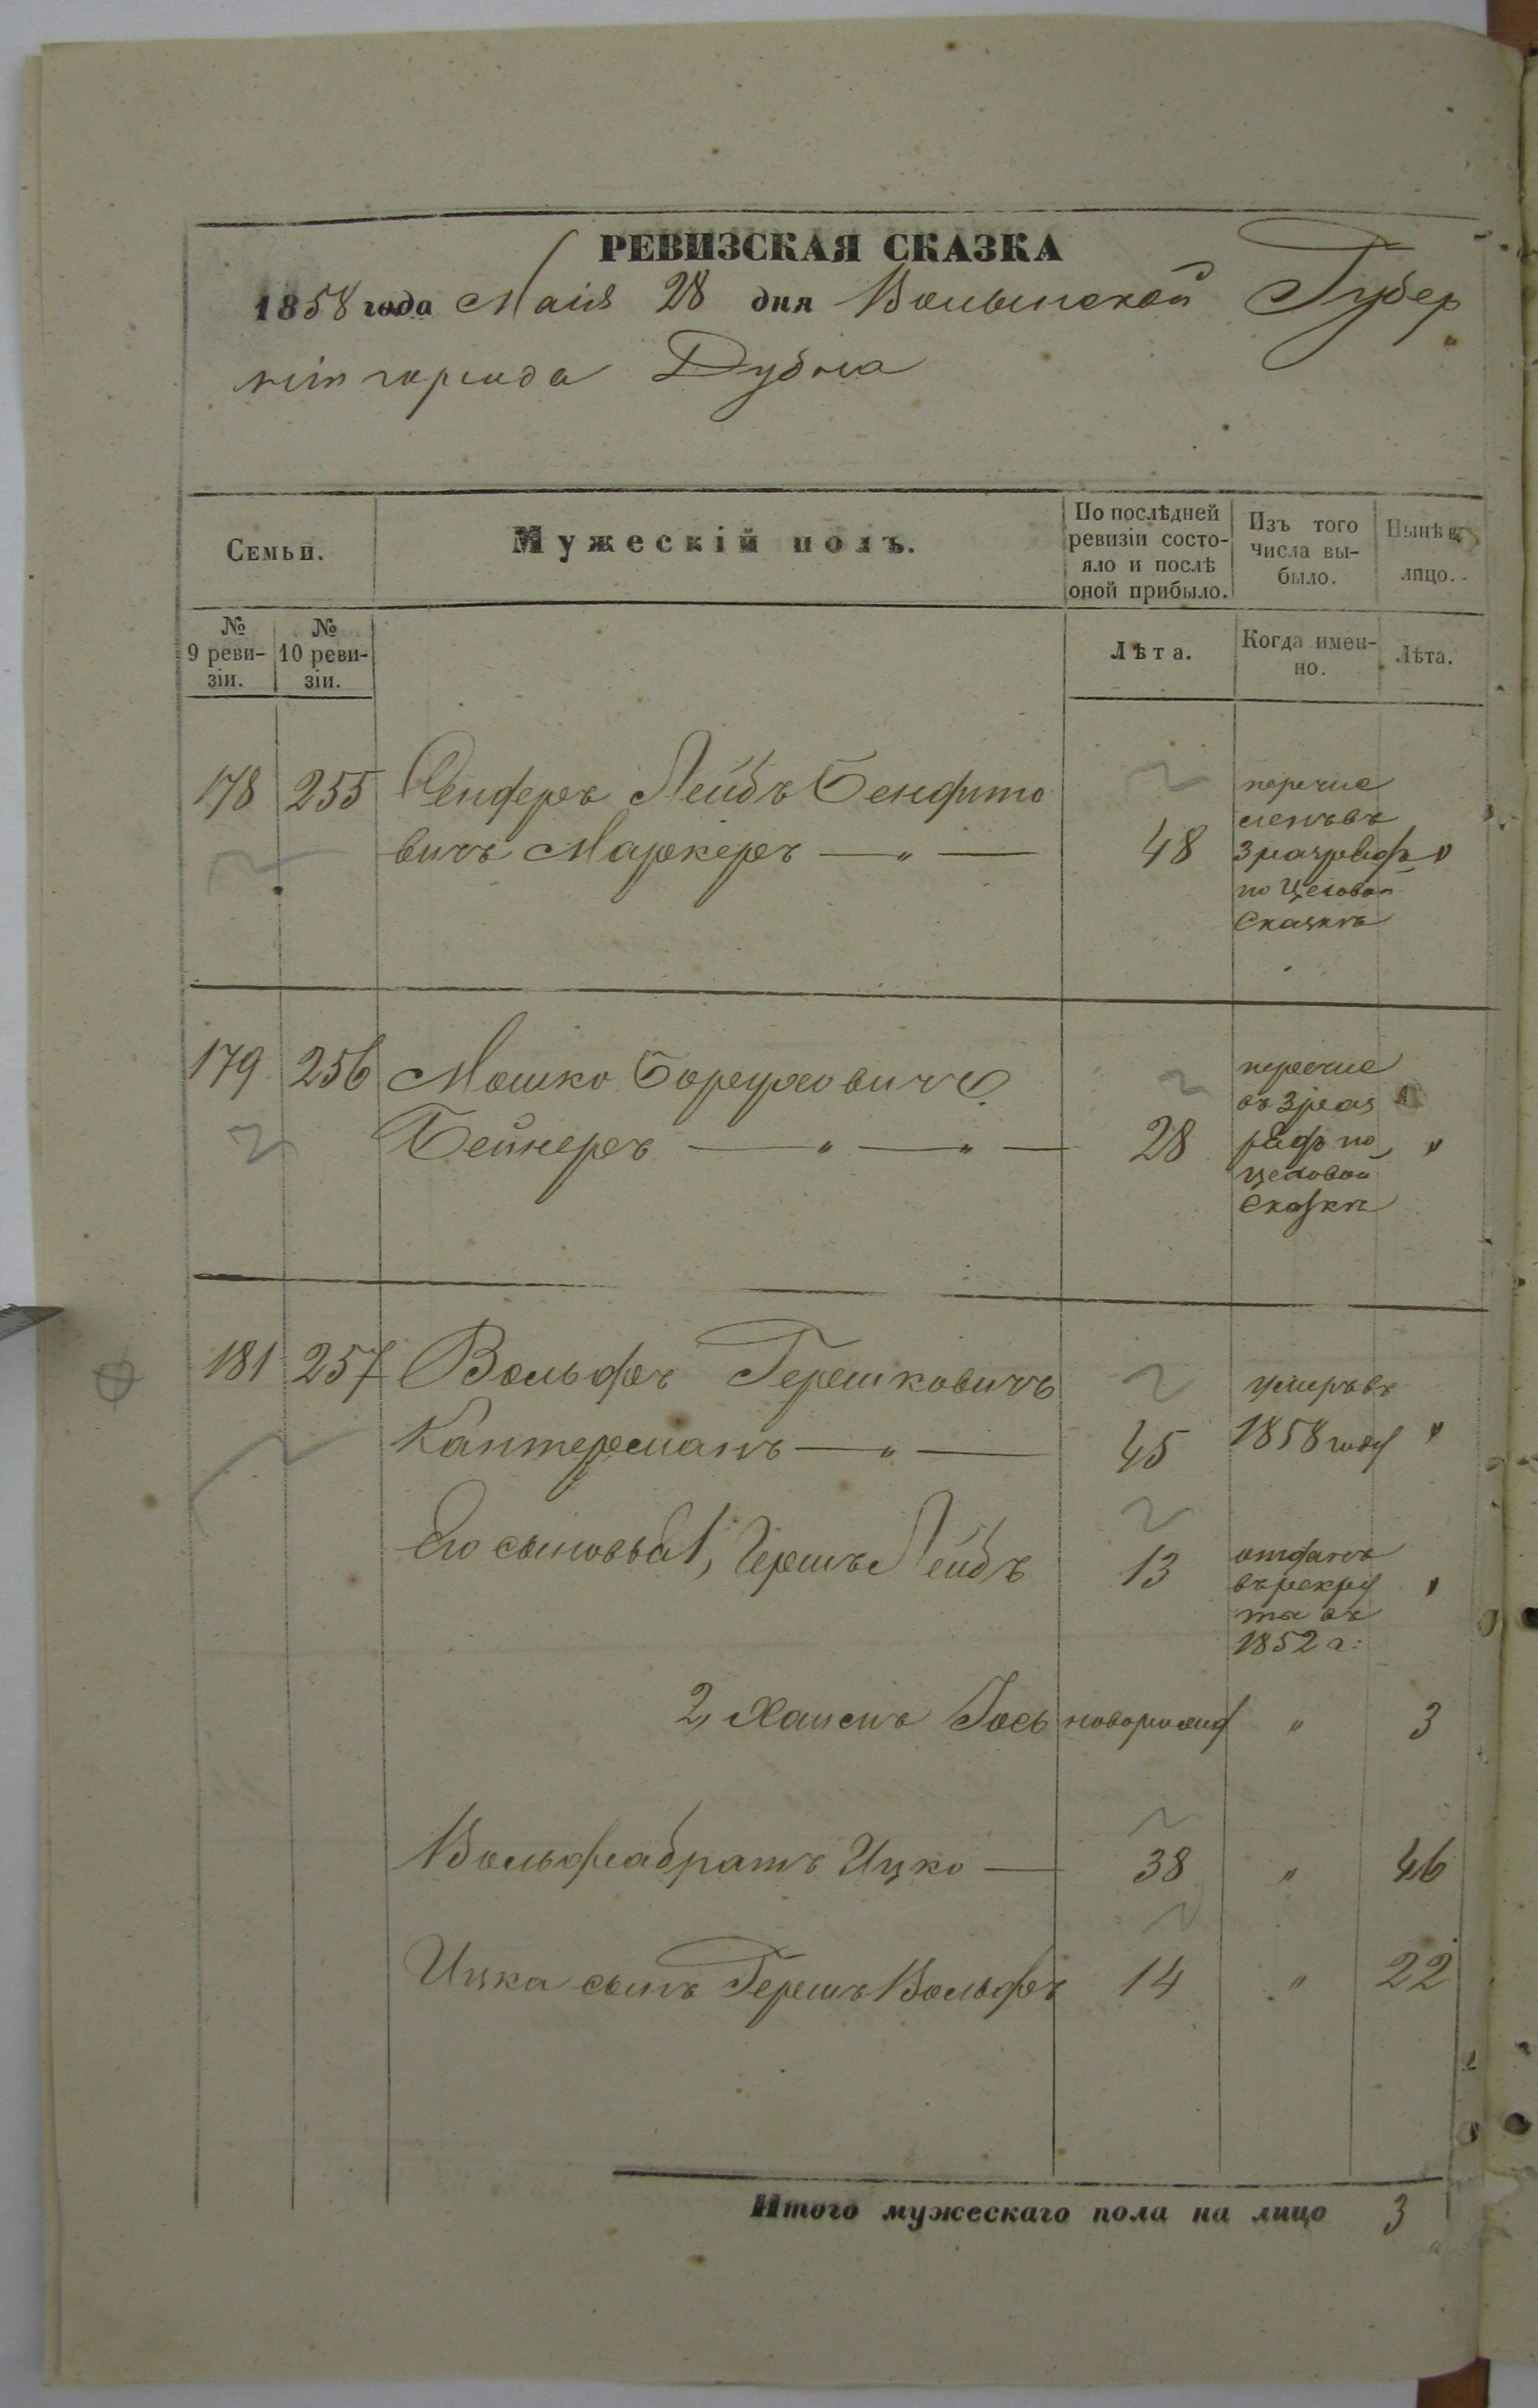 РЕВИЗСКАЯ СКАЗКА
1858 года Маія 28 дня Волынской Губер
ніи города Дубна
Семьи.
Мужескій полъ.
По послѣдней ревизіи состо-
яло и послѣ
оной прибыло.
Изъ того
числа вы-
было.
Нынѣ на
лицо.
№
9 реви-
зіи.
№
10 реви-
зіи.
Лѣта.
Когда имен-
но.
Лѣта.
178 255 Сендеръ Лейбъ
вичъ Маркеръ — „ — 48
перечис
ленъ въ
3 разрядъ „
по Цеховой
Сказкѣ
179 256 Мошко Боруховичъ
Бейнеръ — „ — „ — 28
перечис
въ 3 раз
рядъ по „
цеховой
Сказкѣ
181 257 Вольфъ Гершковичъ
Кантерманъ — „ — 45
умеръ въ
1858 году „
Его сыновья 1, Гершъ Лейбъ 13
отданъ
въ рекру „
ты въ
1852 г:
2, Хаимъ Іось новорожд „ 3
Вольфа братъ Ицко — 38 „ 46
Ицка сынъ Гершъ Вольфъ 14 „ 22
Итого мужескаго пола на лицо 3